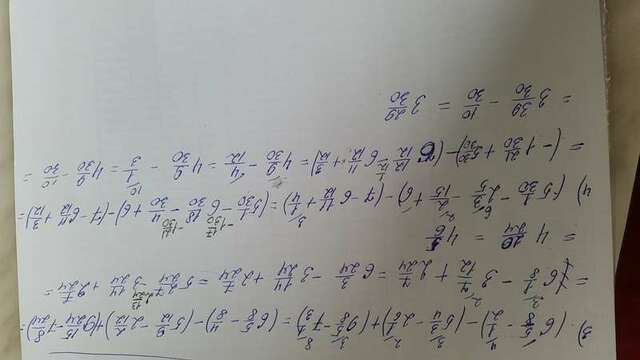 3) (6 5/8 - 1/2) - (5 3/4 - 2 1/6) + (9 5/8 - 7 1/3) = (6 5/8 - 4/8) - (5 9/12 - 2 2/12) + (9 15/24 - 7 8/24) =
= 6 1/8 - 3 7/12 + 2 7/24 = 6 3/24 - 3 14/24 + 2 7/24 = 5 27/24 - 3 14/24 + 2 7/24 =
= 4 20/24 = 4 5/6
4) (5 1/30 - 3/5 - 2/15 + 6) - (7 - 6 11/12 + 1/4) = (5 1/30 - 6 18/30 - 4/30 + 6) - (7 - 6 11/12 + 3/12) =
= (-1 21/30 + 5 30/30) - (6 12/12 - 6 11/12 + 3/12) = 4 9/30 - 4/12 = 4 9/30 - 1/3 = 4 9/30 - 10/30 =
= 3 39/30 - 10/30 = 3 29/30